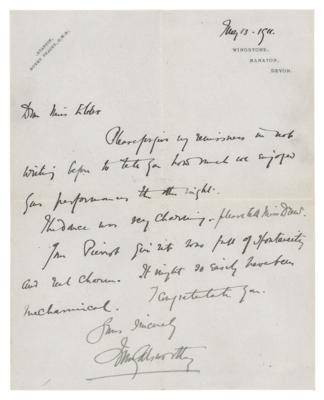 May 13 - 1911.
WINGSTONE,
MANATON,
DEVON.
Dear Miss Elder
Please forgive my remissness in not
writing before to tell you how much we enjoyed
your performances the other night.
The dance was very charming - please tell Miss Drew.
Your Pierrot was full of spontaneity
and real charm. It might so easily have been
mechanical. I congratulate you.
Yours sincerely
John Galsworthy